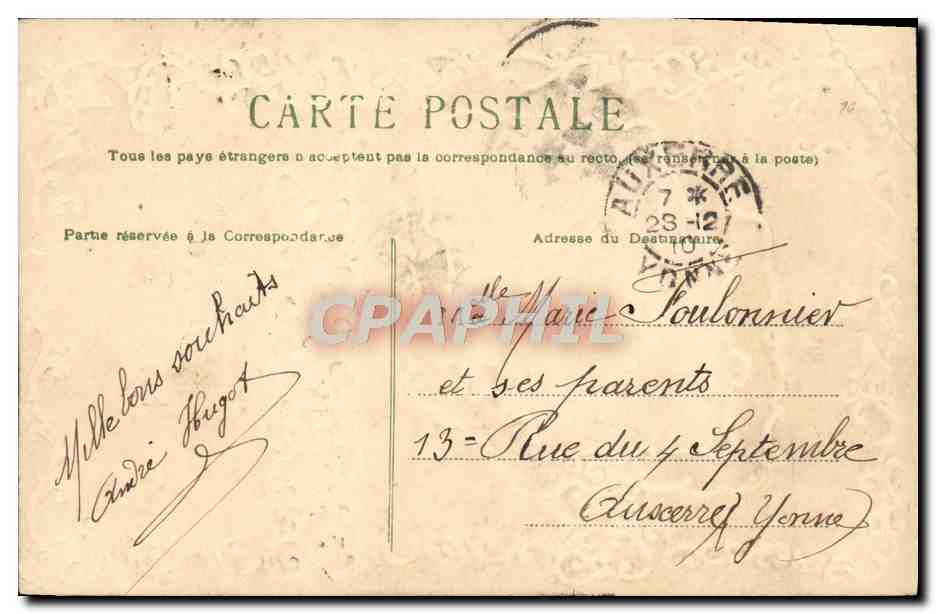 CARTE POSTALE
Tous les pays étrangers n'acceptent pas la correspondance au recto, (se renseigner à la poste)
Partie réservée à la Correspondance
Adresse du Destinataire
AUXERRE
7 *
28 -12
10
YONNE
CPAPHIL
Mille bons souhaits
André Hugot
Mlle Marie Foulonnier
et ses parents
13 = Rue du 4 Septembre
Auxerre (Yonne)